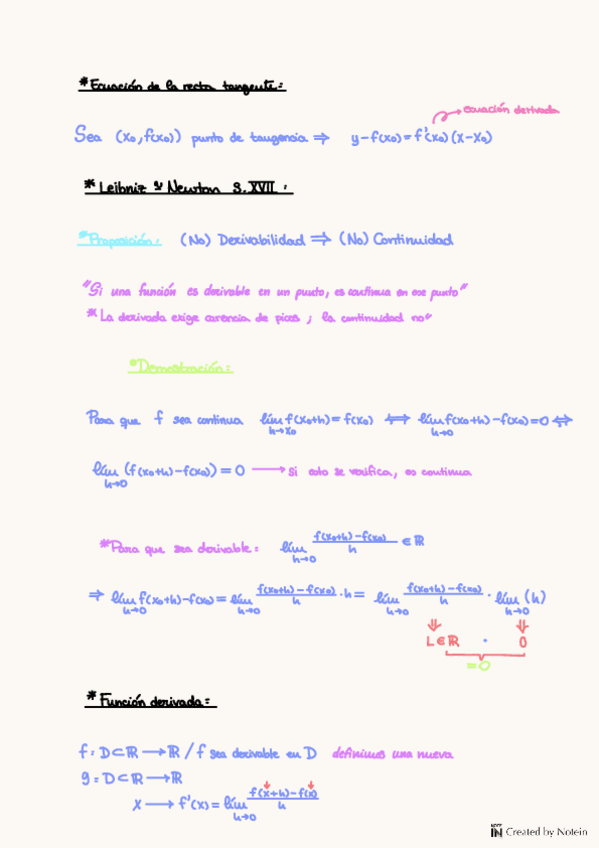 *Ecuación de la recta tangente:
ecuación derivada
Sea (x₀, f(x₀)) punto de tangencia ⇒ y-f(x₀)=f'(x₀)(x-x₀)
* Leibniz y Newton S.XVII:
*Proposición: (No) Derivabilidad ⇒ (No) Continuidad
"Si una función es derivable en un punto, es continua en ese punto"
* La derivada exige carencia de picos; la continuidad no"
*Demostración:
Para que f sea continua lím h→x₀ f(x₀+h)=f(x₀) ⇔ lím h→0 f(x₀+h)-f(x₀)=0 ⇔
lím h→0 (f(x₀+h)-f(x₀))=0 → si esto se verifica, es continua
*Para que sea derivable: lím h→0 f(x₀+h)-f(x₀)/h ∈ ℝ
⇒ lím h→0 f(x₀+h)-f(x₀)= lím h→0 f(x₀+h)-f(x₀)/h · h = lím h→0 f(x₀+h)-f(x₀)/h · lím h→0 (h)
⇓ ⇓
L∈ℝ · 0
=0
* Función derivada:
f: D⊂ℝ → ℝ / f sea derivable en D definimos una nueva
g: D⊂ℝ → ℝ
x → f'(x)= lím h→0 f(x+h)-f(x)/h
NOTE IN Created by Notein